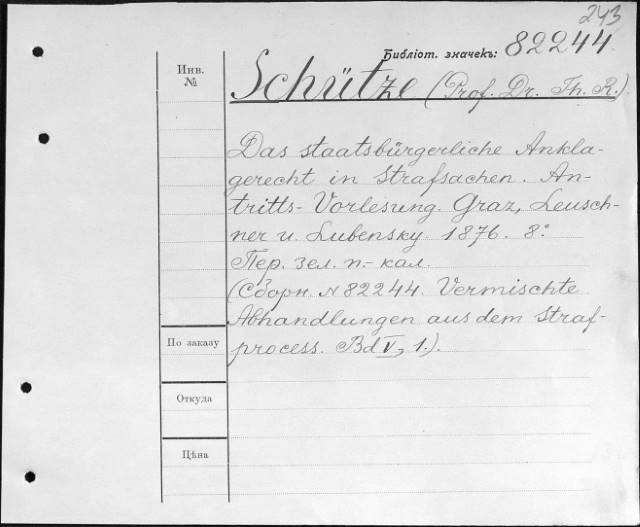 243
Библіот. значекъ: 82244.
Инв. №
Schütze (Prof. Dr. Th. R.)
Das staatsbürgerliche Ankla-
gerecht in Strafsachen. An-
tritts-Vorlesung. Graz, Leusch-
ner u. Lubensky. 1876. 8º.
Пер. зел. п.-кал.
(Сборн. N 82244. Vermischte
Abhandlungen aus dem Straf-
process. Bd V, 1.).
По заказу
Откуда
Цѣна